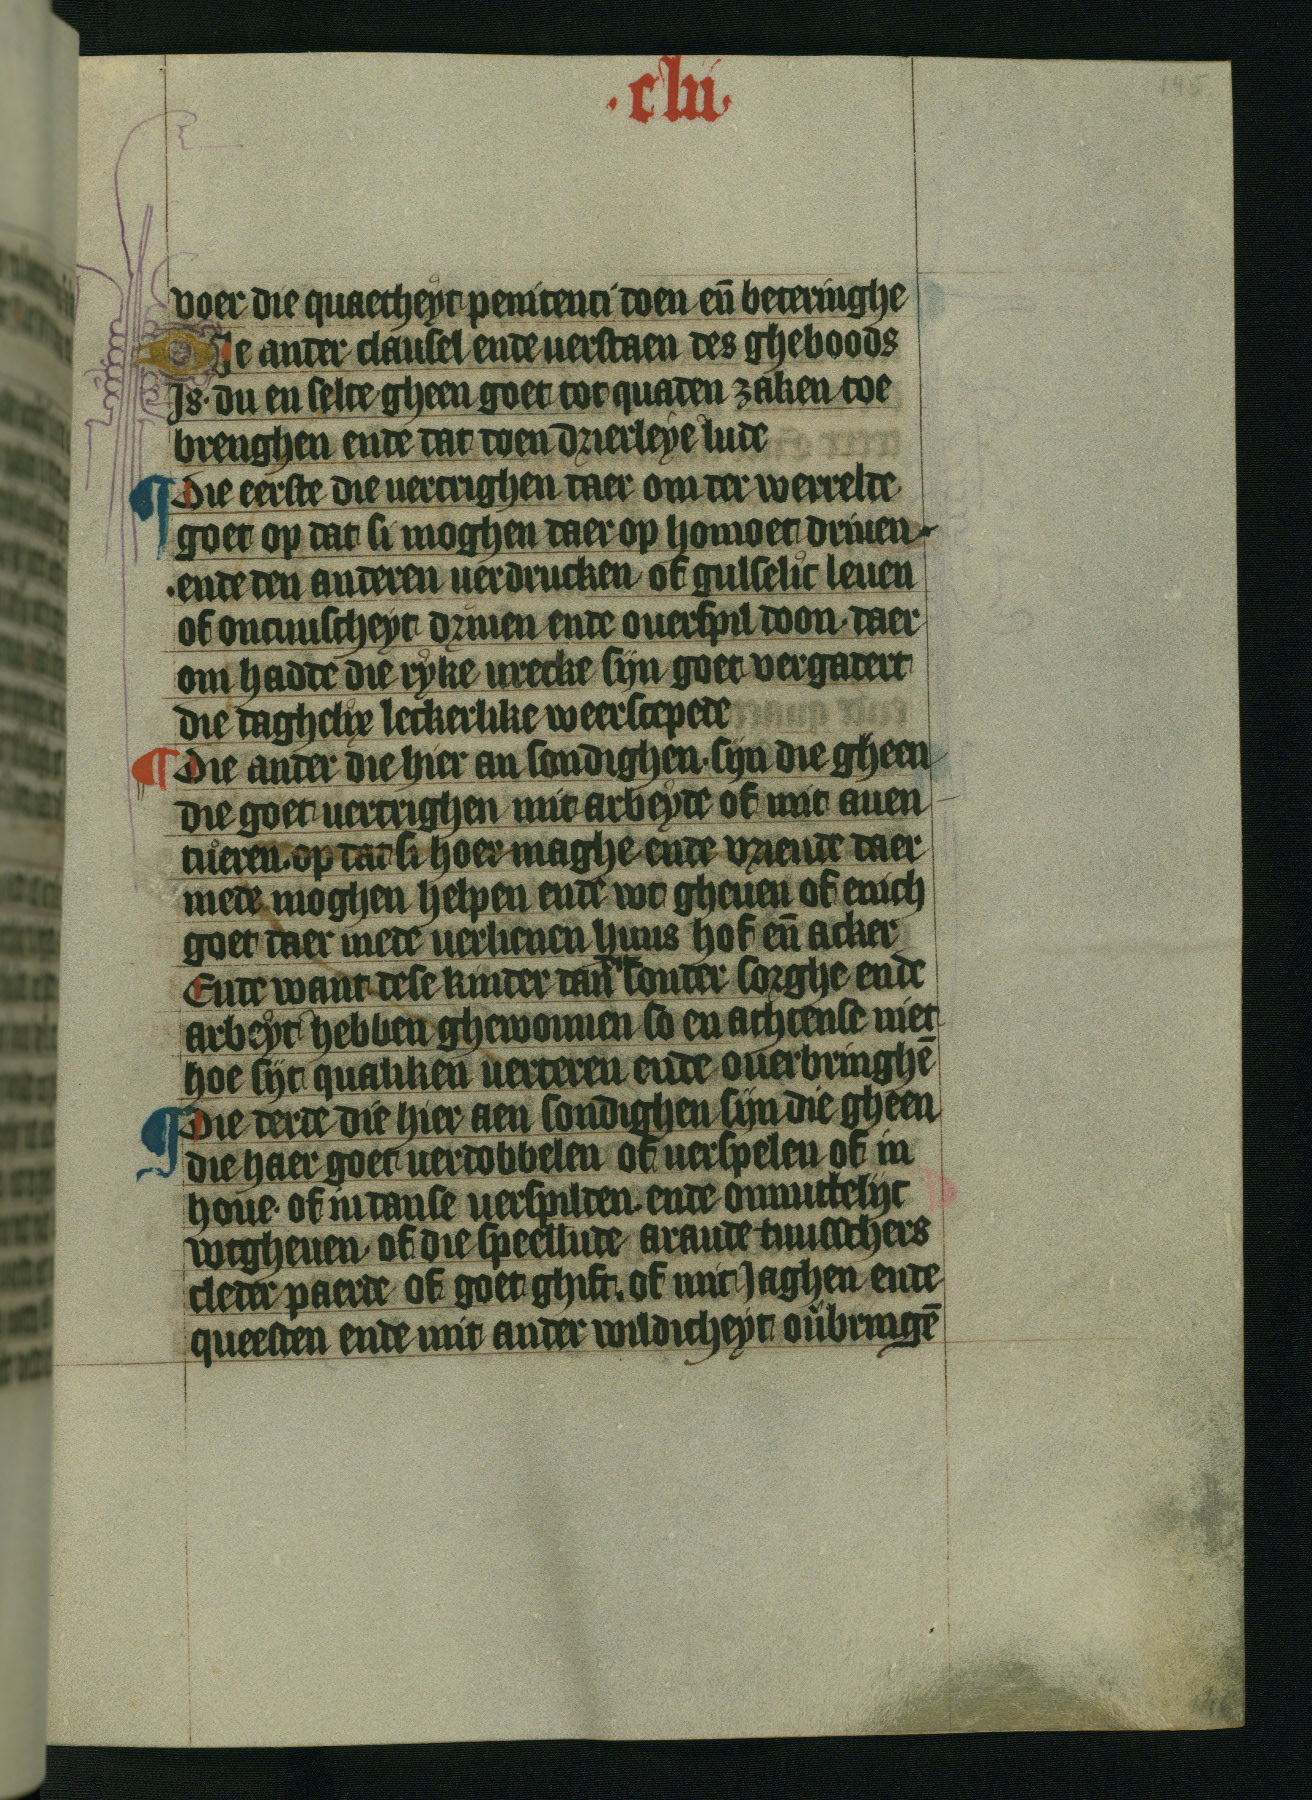 .clii.
195
voer die quaetheyt penitenci doen eñ beteringhe
Die ander clausel ende verstaen des gheboods
Is. du en selte gheen goet tot quaden zaken toe
brenghen ende dat doen drierleye lude
¶ Die eerste die vercrighen daer om der werrelde
goet op dat si moghen daer op homoet driuen
ende den anderen verdrucken of gulselic leuen
of oncuuscheyt driuen ende ouerspil doon. daer
om hadde die ryke vrecke sijn goet vergadert
die daghelix leckerlike weerscepede
¶ Die ander die hier an sondighen. sijn die gheen
die goet vercrighen mit arbeyde of mit auen
tueren. op dat si hoer maghe ende vriende daer
mede moghen helpen ende wt gheuen of enich
goet daer mede verlienen huus hof eñ acker
Ende want dese kinder dañ sonder sorghe ende
arbeyt hebben ghewonnen so en achtense niet
hoe sijt qualiken verteren ende ouerbringhē
¶ Die derde die hier aen sondighen sijn die gheen
die haer goet verdobbelen of verspelen of in
houe. of in danse verspilden. ende onnuttelijc
wtgheuen of die speellude araude tuusschers
cleder paerde of goet ghift. of mit Jaghen ende
queesten ende mit ander wildicheyt ou̓bringē